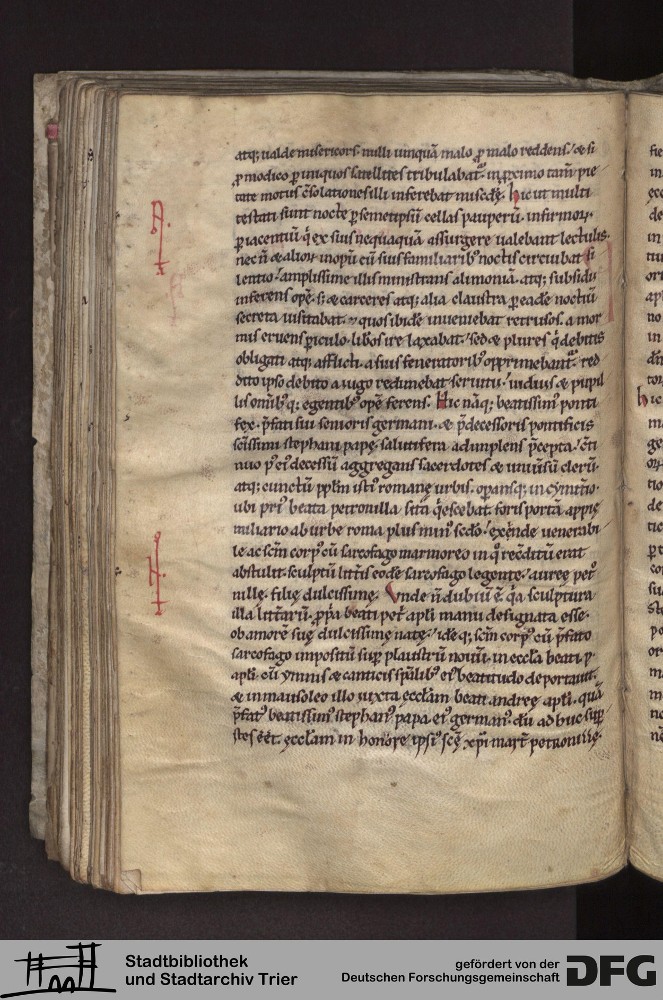 atq; ualde misericors. nulli unquā malo ꝓ malo reddens. & si
ꝓ modico ꝑ iniquos satellites tribulabat᷑. in ꝓximo tam̄ pie
tate motus c̄solationes illi inferebat miscdę. hic ut multi
testati sunt nocte ꝑ semetipsū cellas pauperū. infirmoꝝ.
ꝑ iacentiū q̇ ex suis nequaquā assurgere ualebant lectulis.
nec n̄ & alioꝝ inopū cū suis familiarib᷒ noctis circuibat si
lentio. amplissime illis ministrans alimoniā. atq; subsidii
inferens opē. s; & carceres atq; alia claustra ꝑ eadē noctiū
secreta uisitabat. & quos ibidē inueniebat retrusos. a mor
tis eruens periculo. libos ire laxabat. Sed & plures q̇ debitis
obligati atq; afflicti. a suis feneratorib᷒ opprimebant᷑. red
dito ipso debito a iugo redimebat seruitii. uiduis & pupil
lis omib᷒q; egentib᷒ opē ferens. Hic nāq; beatissim᷒ ponti
fex. p̄fati sui senioris germani. & p̄decessoris pontificis
sc̄issimi stephani papę. salutifera adimplens p̄cepta. c̄ti
nuo p᷒ ei᷒ decessū aggregans sacerdotes & uniūsū clerū.
atq; cunctū ppl̄m isti᷒ romanę urbis. oꝑansq; in cẏmit̄io.
ubi pri᷒ beata petronilla sita q̇escebat. foris porta appię
miliario ab urbe roma plus min᷒ scdo. exęnde uenerabi
le ac sc̄m corp᷒ cū sarcofago marmoreo in q̇ recōditū erat
abstulit. sculptū litt̄is eodē sarcofago legente. aureę pet᷒
nillę. filię dulcissimę. Vnde n̄ dubiū ē. q̇a sculptura
illa litt̄arū. ꝓpa beati pet᷒ apl̄i manu designata esse.
ob amorē suę dulcissimę natę. idēq; sc̄m corp᷒ cū p̄fato
sarcofago impositū suꝑ plaustrū nouū. in eccl̄a beati p
apl̄i. cū ymnis & canticis spūalib᷒ ei᷒ beatitudo deportauit.
& in mausoleo illo iuxta eccl̄am beati andreę apl̄i. quā
p̄fat᷒ beatissim᷒ stephan᷒ papa ei᷒ german᷒. dū adhuc suꝑ
stes eēt. ęccl̄am in honore ipsi᷒ sc̄ę xp̄i mart̄. petronillę.
Stadtbibliothek
und Stadtarchiv Trier
gefördert von der
Deutschen Forschungsgemeinschaft
DFG